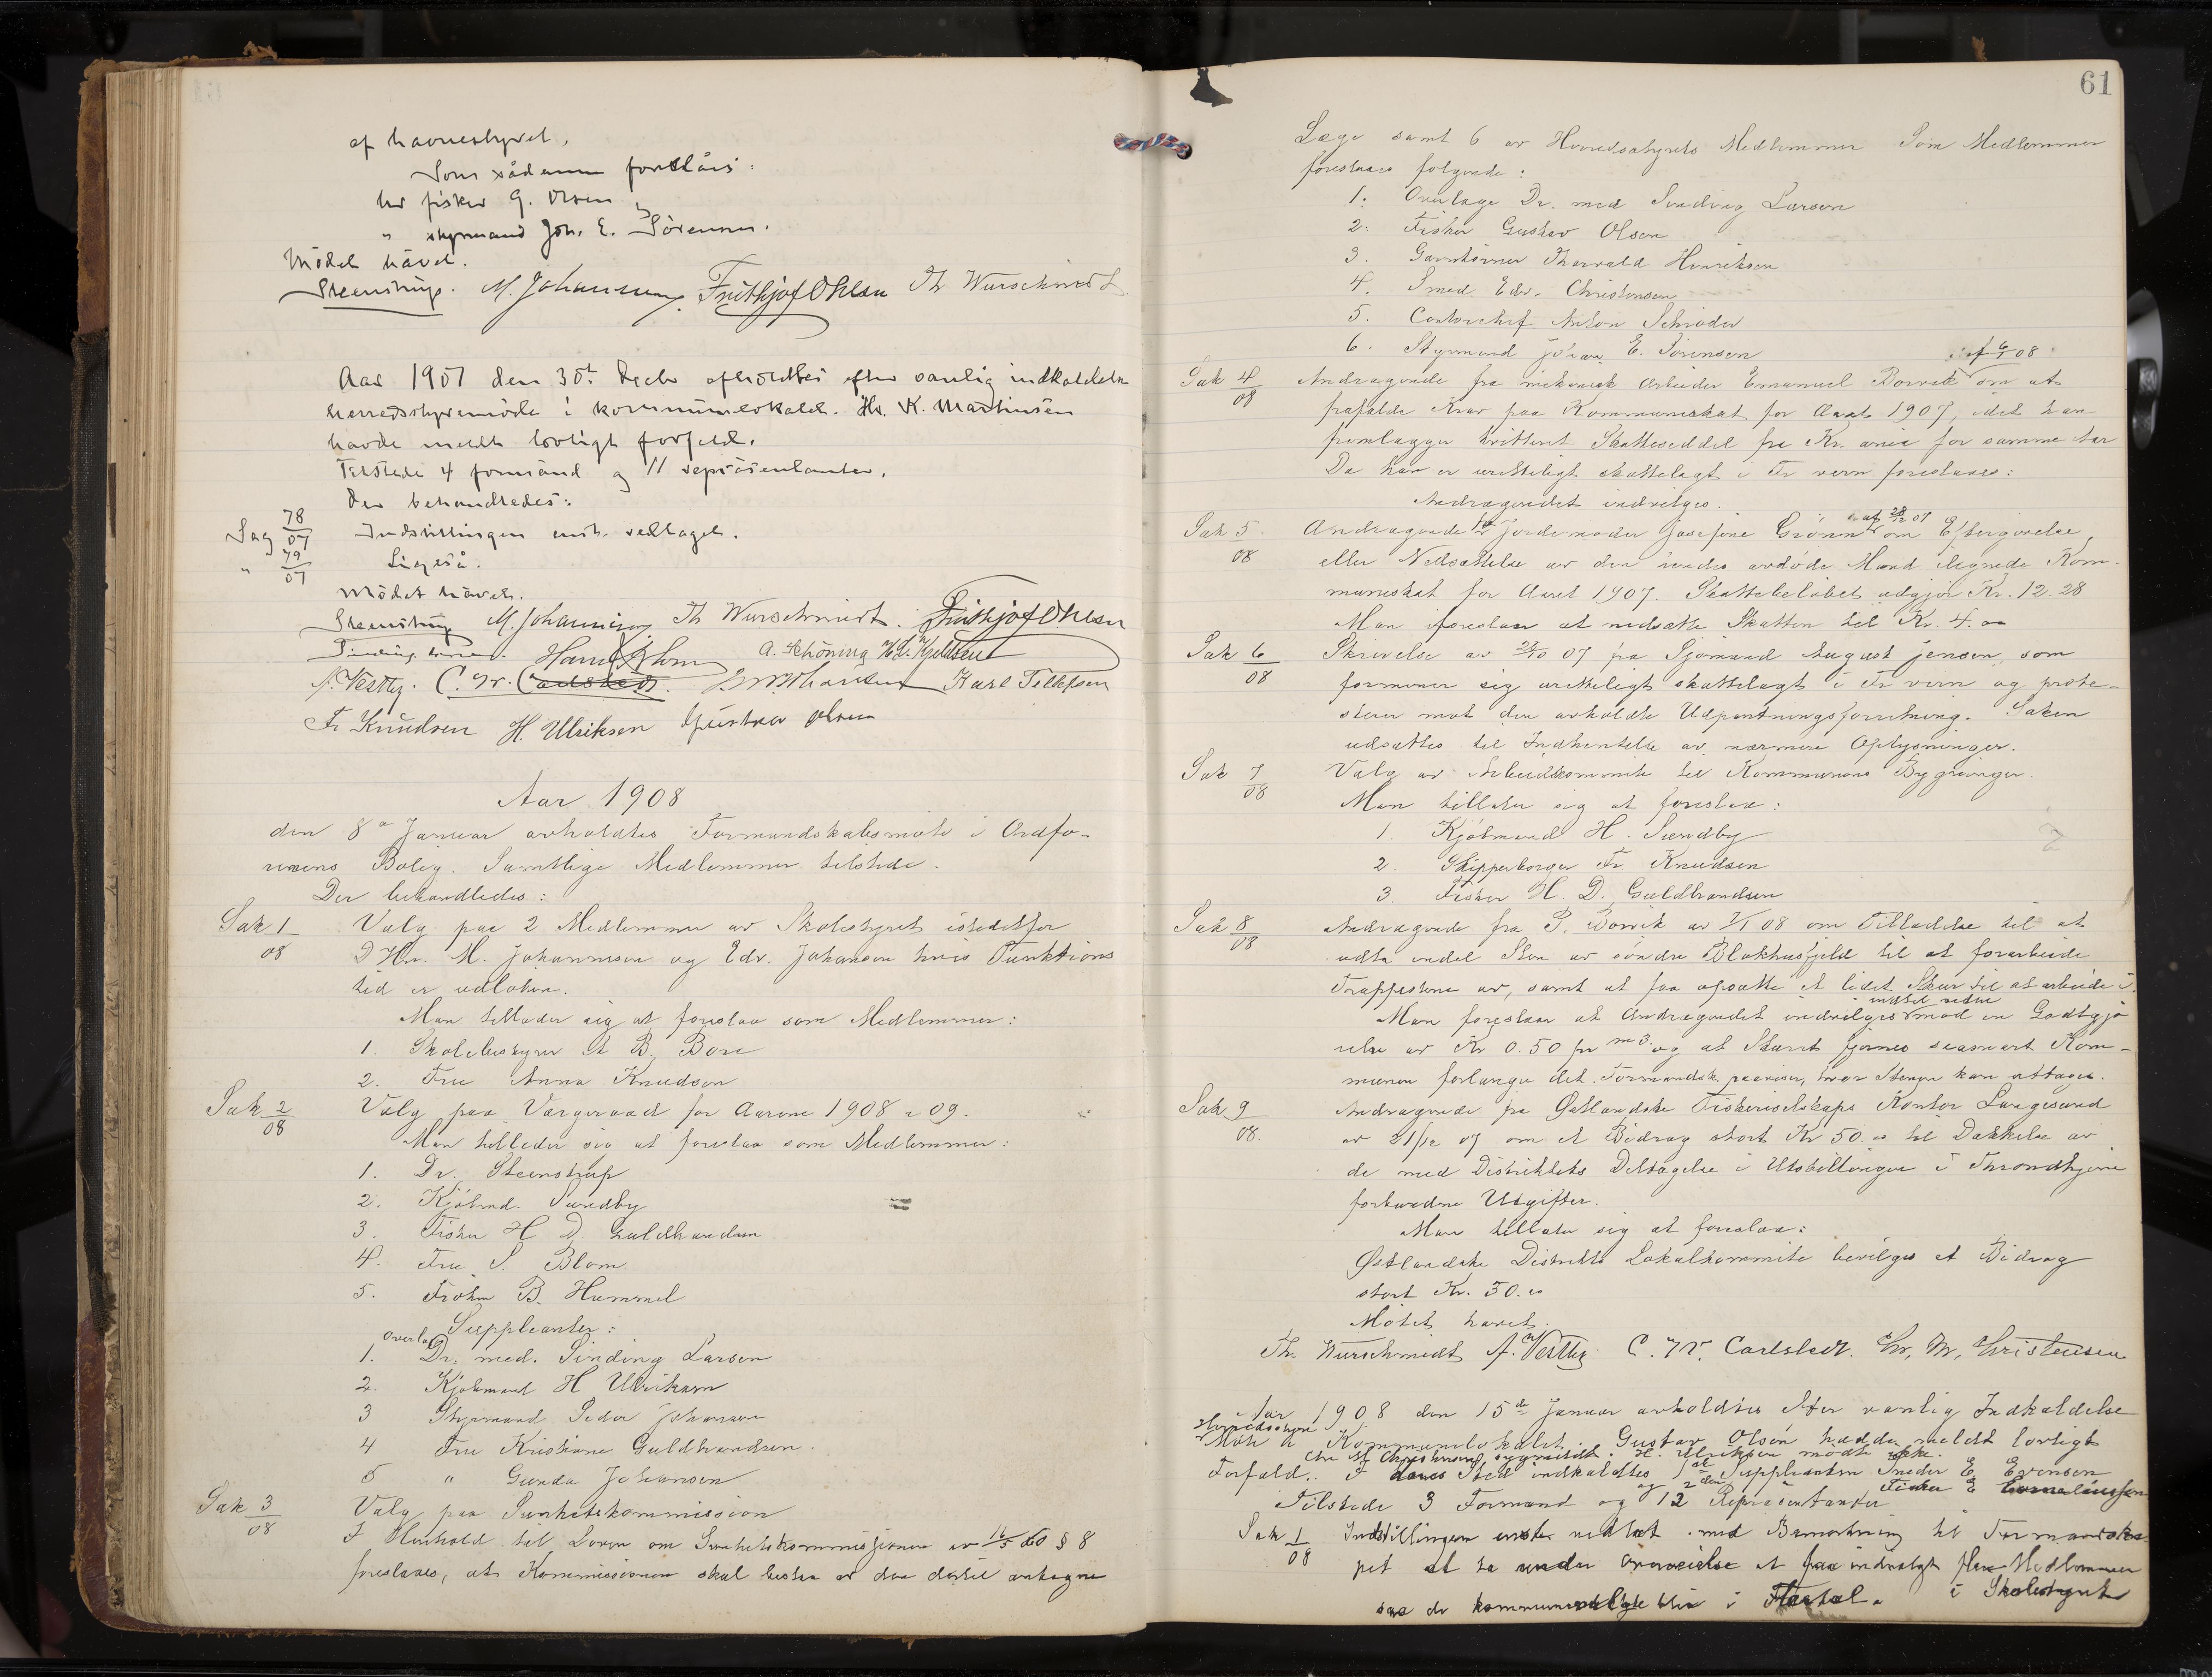 af havnestyret.
Som sådanne foreslåes:
hr fisker G. Olsen
" styrmand Joh. E. Sörensen.
Mödet hävet.
Steenstrup. M. Johannesen. Frithjof Ohlsen Th Wurschmidt
Aar 1907 den 30t Decbr afholdtes efter vanlig indkaldelse
herredsstyremöde i kommunelokalet. Hr. K. Martinsen
havde meldt lovligt forfald.
Tilstede 4 formänd og 11 repräsentanter.
Der behandledes:
Sag 78/07 Indstillingen enst. vedtaget.
" 79/07 Ligeså.
Mödet hävet.
Steenstrup M. Johannesen Th Wurschmidt. Frithjof Ohlsen
Sinding Larsen. Hans Blom A. Schöning H. L. Kjeldsen
A. Vestby. C. W. Carlstedt. Karl Tellefsen
Fr Knudsen H. Ulriksen Gustav Olsen
Aar 1908
den 8de Januar avholdtes Formandskabsmöte i Ordfö-
rerens Bolig. Samtlige Medlemmer tilstede.
Der behandledes:
Sak 1/08 Valg paa 2 Medlemmer av Skolestyret istedetfor
D'Hrr. M. Johannesen og Edv. Johansen hvis Funktions
tid er utlöben.
Man tillader sig at foreslaa som Medlemmer:
1. Skolebestyrer A B. Boye
2. Fru Anna Knudsen
Sak 2/08 Valg paa Vergeraad for Aarene 1908 & 09.
Man tillader sig at foreslaa som Medlemmer:
1. Dr. Steenstrup
2. Kjöbmd. Sundby
3. Fisker H D. Guldbrandsen
4. Fru S. Blom
5. Fröken B. Hummel
Suppleanter:
1. Overlæge Dr. med. Sinding Larsen
2. Kjöbmand H Ulriksen
3 Styrmand Peder Johansen
4 Fru Kristiane Guldbrandsen.
5 " Gunda Johansen
Sak 3/08 Valg paa Sunhetskommission
I Henhold til Loven om Sunhetskommissjoner av 16/5 60 § 8
foreslaaes, at Kommissionen skal bestaa av den dertil antagne
61
Læge samt 6 av Herredsstyrets Medlemmer Som Medlemmer
foreslaaes følgende:
1. Overlæge Dr. med Sinding Larsen
2. Fisker Gustav Olsen
3. Garntörrer Thorvald Henriksen
4. Smed Edv. Christensen
5. Contorchef Anton Schröder
6. Styrmand Johan E. Sörensen
Sak 4/08 Andragende fra mekanisk Arbeider Emanuel Borvik af 6/1 08 om at
frafalde Krav paa Kommuneskat for Aaret 1907, idet han
fremlægger kvitteret Skatteseddel fra Kr.ania for samme Aar
Da han er urettelig skattelagt i Fr vern foreslaaes:
Andragendet indvilges.
Sak 5/08 Andragende fra Jordemoder Josefine Grönn af 28/12 07 om Eftergivelse
eller Nedsættelse av den hendes avdöde Mand ilignede Kom-
muneskat for Aaret 1907. Skattebelöbet udgjör Kr. 12.28
Man foreslaar at nedsætte Skatten til Kr. 4.00
Sak 6/08 Skrivelse av 29/10 07 fra Sjömand August Jensen, som
formener sig urettelig skattelagt i Fr vern og prote-
sterer mot den avholdte Udpantningsforretning. Saken
udsættes til Indhentelse av nærmere Oplysninger.
Sak 7/08 Valg av Arbeidskommite til Kommunens Bygninger.
Man tillater sig at foreslaa:
1. Kjöbmand H. Sundby
2. Skipperborger Fr. Knudsen
3. Fisker H. D. Guldbrandsen
Sak 8/08 Andragende fra P. Borvik av 7/1 08 om Tilladelse til at
udta endel Sten av söndre Blokhusfjeld til at forarbeide
Trappestene av, samt at faa opsætte et lidet Skur til at arbeide i.
Man foreslaar at Andragendet indvilges indtil videre mod en Godtgjö
relse av Kr 0.50 pr m3. og at Skuret fjernes seasnart Kom-
munen forlanger det. Formandsk. paaviser, hvor Stenen kan uttages.
Sak 9/08. Andragende fra Östlandske Fiskeriselskaps Kontor Langesund
av 31/12 07 om et Bidrag stort Kr 50.00 til Dækkelse av
de med Distriktets Deltagelse i Utstillingen i Throndhjem
forbundne Utgifter.
Man tillater sig at foreslaa:
Östlandske Distrikts Lokalkommite bevilges et Bidrag
stort Kr. 50.00
Mötet hævet.
Th. Wurschmidt A. Vestby C. W. Carlstedt. Chr. M. Christensen
Aar 1908 den 15de Januar avholdtes efter vanlig Indkaldelse
Herredsstyre
Möte i Kommunelokalet. Gustav Olsen hadde meldt lovligt
Chr M Christensen sygmeldt. H. Ulriksen mödte ikke.
Forfald. I deres Sted indkaldtes 1ste og 2den Suppleanten Snedker E. Evensen
Fisker E
Tilstede 3 Formænd og 12 Repræsentanter
Sak 1/08 Indstillingen enst. vedtat med Bemerkning til Formandska
pet at ta under Overveielse at faa indvalgt flere Medlemmer
i Skolestyret
saa de kommunevalgte blir i Flertal.